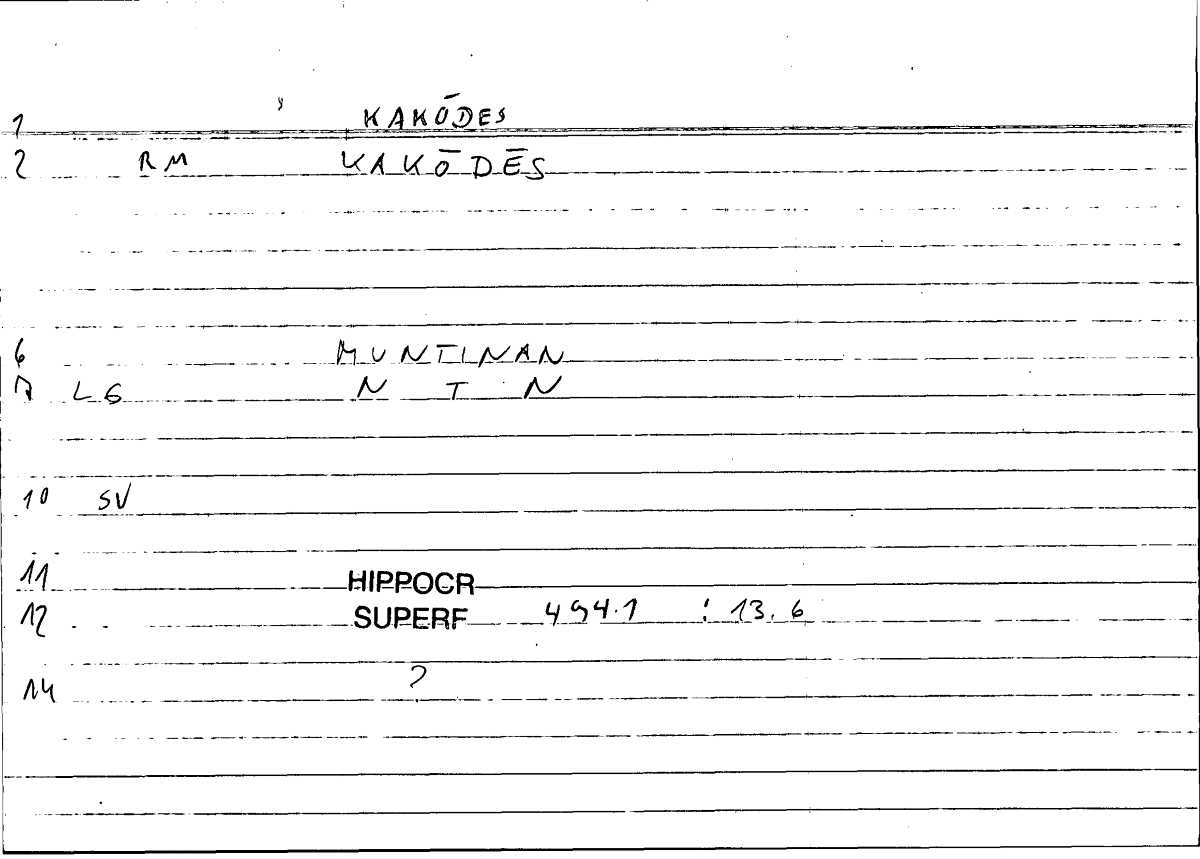 1 KAKŌDES
2 RM KAKŌDĒS
6 MUNTINAN
7 LG N T N
10 SV
11 HIPPOCR
12 SUPERF 494.1 : 13.6
14 ?